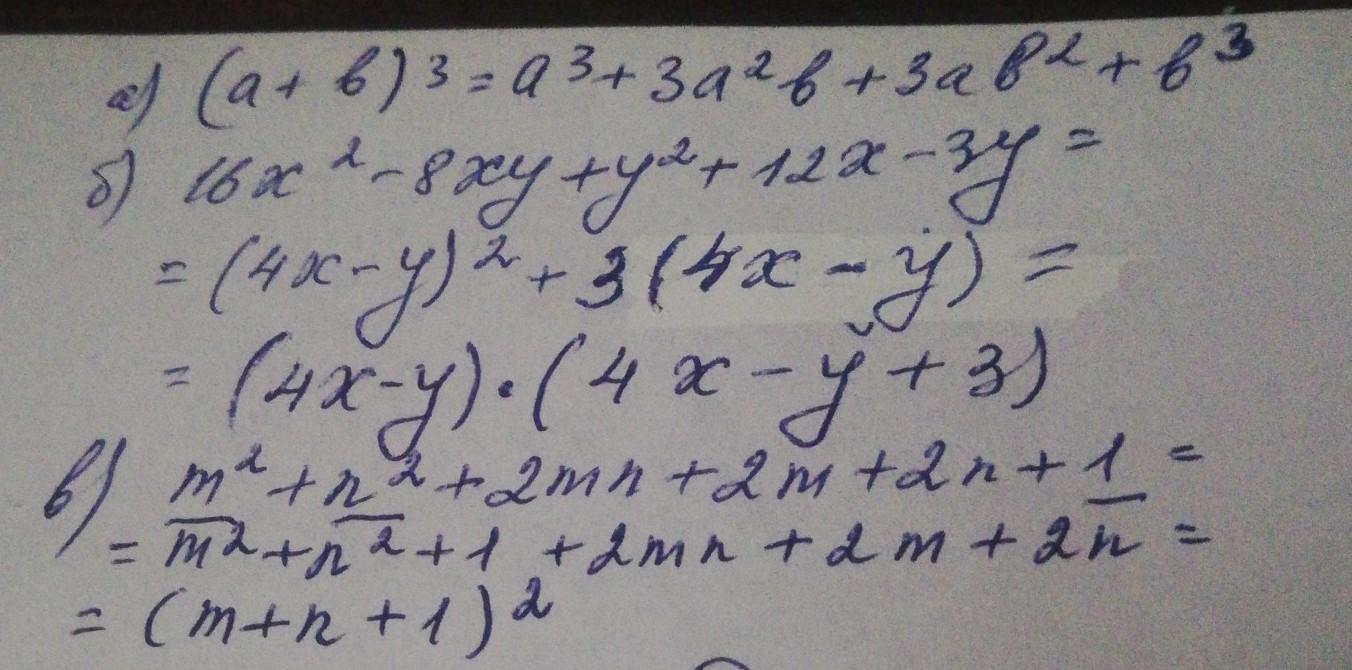 а) (a + b)³ = a³ + 3a²b + 3ab² + b³
б) 16x² - 8xy + y² + 12x - 3y =
= (4x - y)² + 3(4x - y) =
= (4x - y) · (4x - y + 3)
в) m² + n² + 2mn + 2m + 2n + 1 =
= m² + n² + 1 + 2mn + 2m + 2n =
= (m + n + 1)²